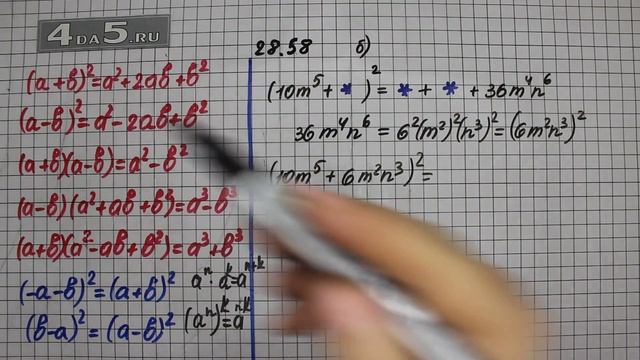 4DA5.RU
28.58 б)
(a+b)²=a²+2ab+b²
(a-b)²=a²-2ab+b²
(a+b)(a-b)=a²-b²
(a-b)(a²+ab+b²)=a³-b³
(a+b)(a²-ab+b²)=a³+b³
(-a-b)²=(a+b)²
(b-a)²=(a-b)²
aⁿ·aᵏ=aⁿ⁺ᵏ
(aⁿ)ᵏ=aⁿᵏ
(10m⁵+ * )² = * + * + 36m⁴n⁶
36m⁴n⁶ = 6²(m²)²(n³)² = (6m²n³)²
(10m⁵+6m²n³)² =